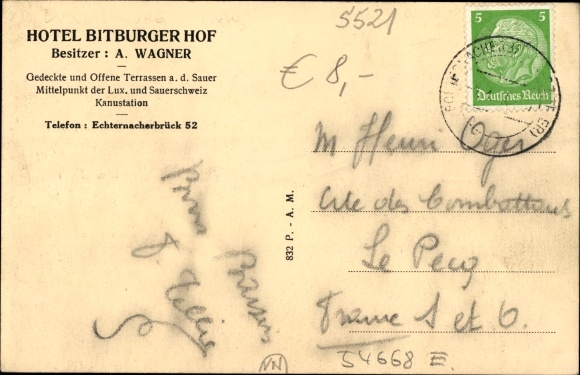 HOTEL BITBURGER HOF
Besitzer : A. WAGNER
Gedeckte und Offene Terrassen a. d. Sauer
Mittelpunkt der Lux. und Sauerschweiz
Kanustation
Telefon : Echternacherbrück 52
5521
€ 8,-
5 5
Deutsches Reich
M Henri Oger
Cité des Combattants
Le Pecq
France S et O.
Bons Baisers
832 P. - A. M.
VN
54668 E.